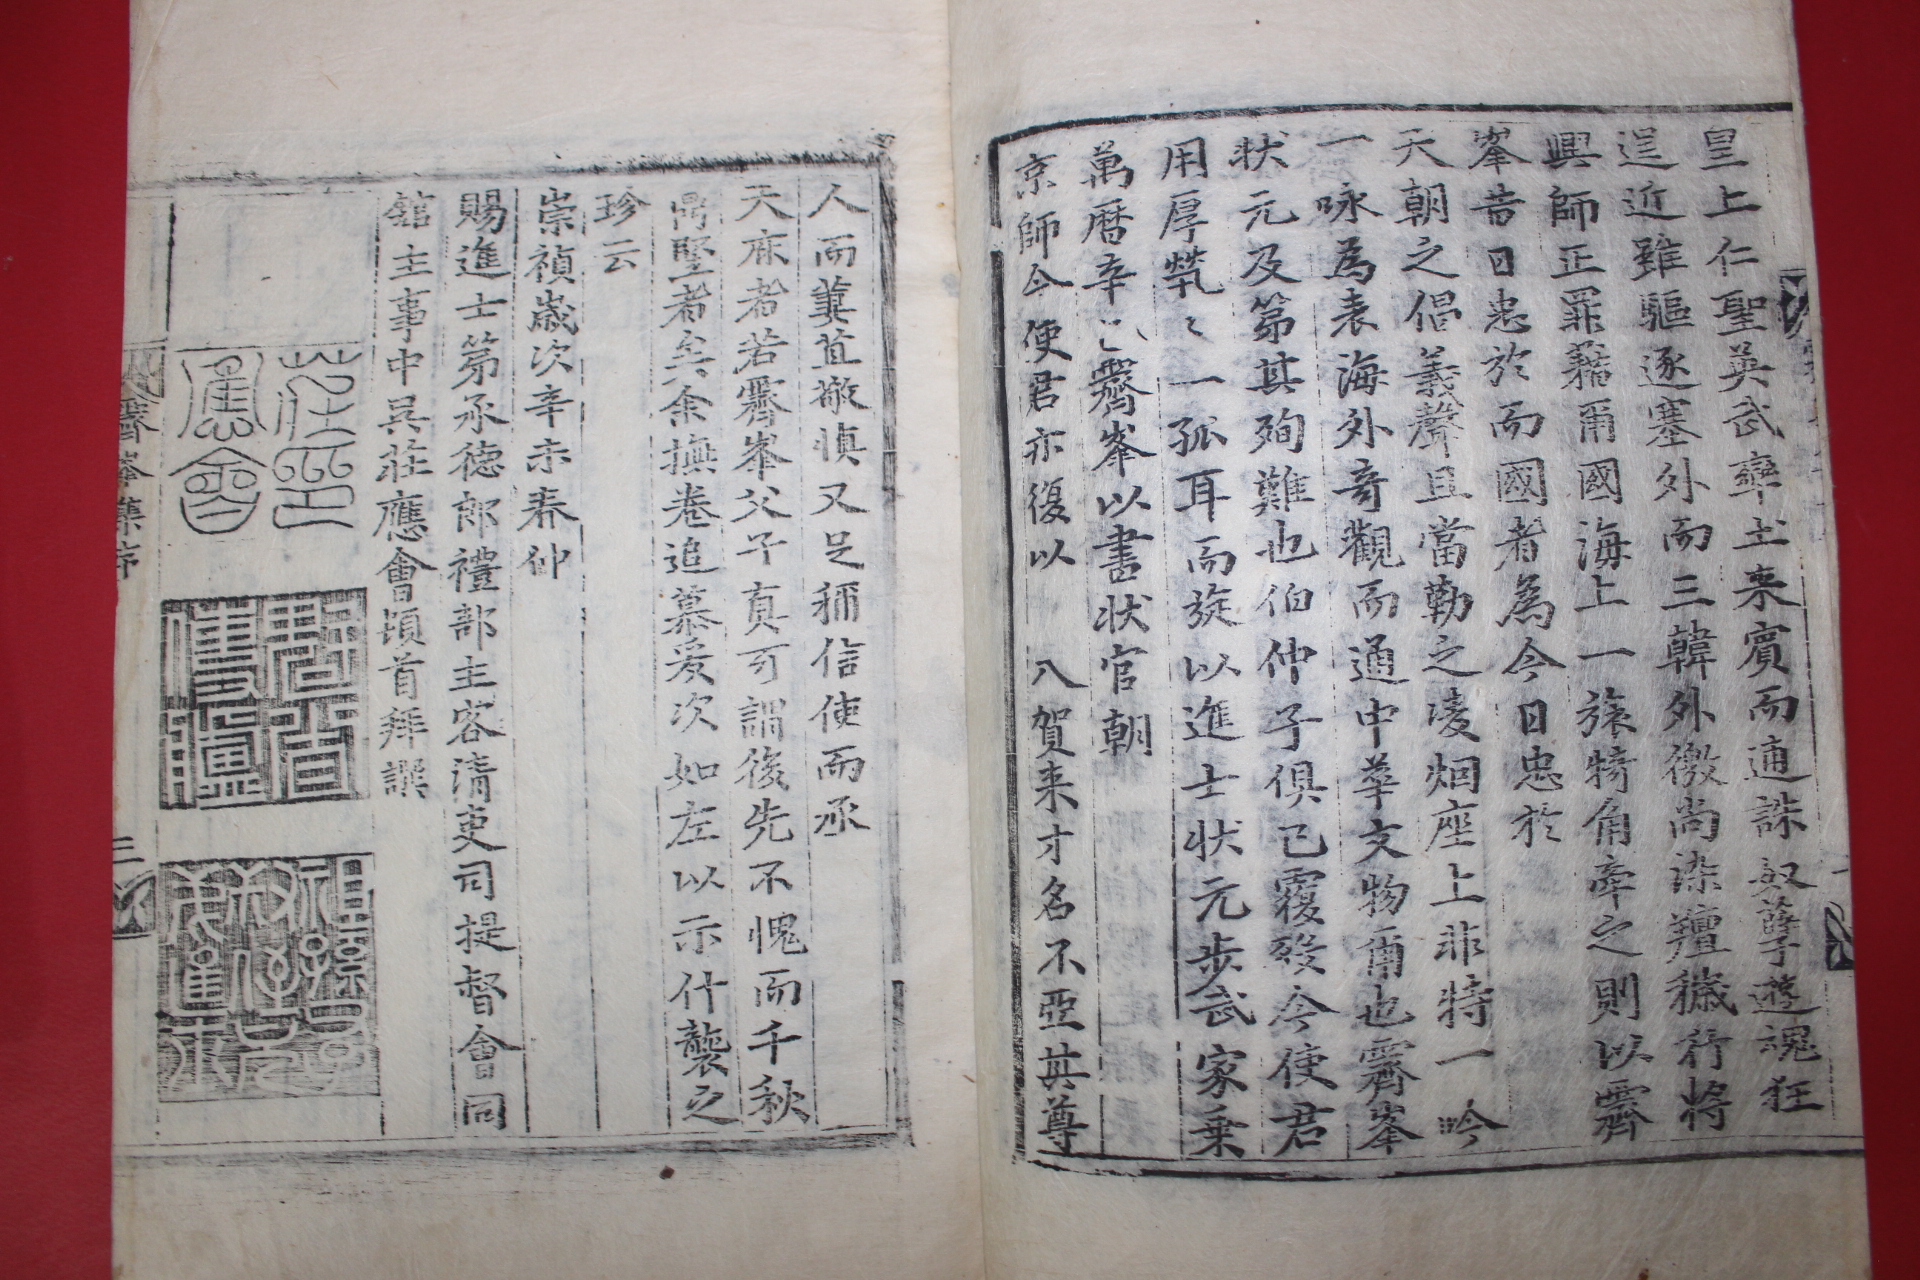 皇上仁聖英武率土來賓而逋誅奴孽遊魂狂
逞近雖驅逐塞外而三韓外徼尚染羶穢行將
興師正罪藉爾國海上一旅犄角牽之則以霽
峯昔日忠於而國者為今日忠於
天朝之倡義聲且當勒之凌烟座上非特一吟
一咏為表海外奇觀而通中華文物甭也霽峯
狀元及第其殉難也伯仲子俱已覆歿今使君
用厚煢〻一孤耳而旋以進士狀元步武家乗
萬曆辛巳霽峯以書状官朝
京師今使君亦復以 入賀来才名不亞其尊
人而冀苴敬慎又足稱信使而承
天庥者若霽峯父子真可謂後先不愧而千秋
鼎堅者矣余撫卷追慕爰次如左以示什襲之
珍云
崇禎歲次辛未春仲
賜進士第承德郎禮部主客清吏司提督會同
舘主事中吳莊應會頓首拜譔
莊印
應會
霽峯集序
三